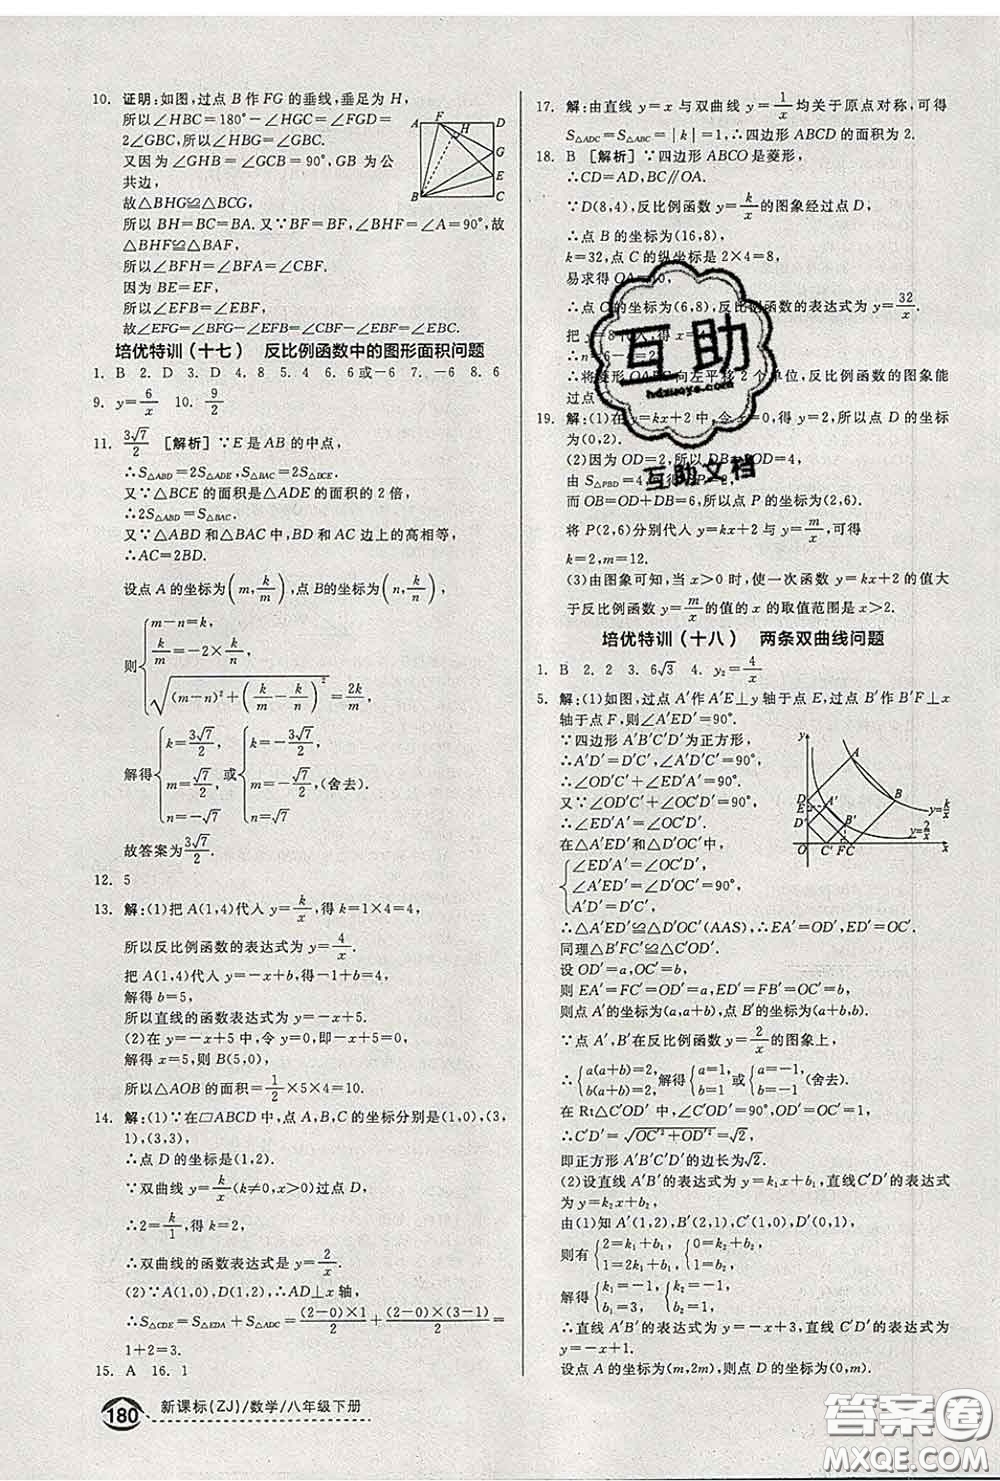 10. 证明:如图,过点 B 作 FG 的垂线,垂足为 H,
所以∠HBC=180°-∠HGC=∠FGD=
2∠GBC,所以∠HBG=∠GBC.
又因为∠GHB=∠GCB=90°,GB 为公
共边,
故△BHG≌△BCG,
所以 BH=BC=BA. 又∵BF=BF,∠BHF=∠A=90°,故
△BHF≌△BAF,
所以∠BFH=∠BFA=∠CBF.
因为 BE=EF,
所以∠EFB=∠EBF,
故∠EFG=∠BFG-∠EFB=∠CBF-∠EBF=∠EBC.
A F D H G E B C
培优特训(十七) 反比例函数中的图形面积问题
1. B 2. D 3. D 4. 8 5. 4 6. 6或-6 7. -6 8. 6
9. y=6/x 10. 9/2
11. 3√7/2 [解析]∵E 是 AB 的中点,
∴S△ABD=2S△ADE,S△BAC=2S△BCE.
又∵△BCE 的面积是△ADE 的面积的 2 倍,
∴2S△ABD=S△BAC.
又∵△ABD 和△BAC 中,BD 和 AC 边上的高相等,
∴AC=2BD.
设点 A 的坐标为(m,k/m),点 B的坐标为(n,k/n),
则{m-n=k, k/m=-2×k/n, √((m-n)²+(k/m-k/n)²)=2k/m,
解得{k=3√7/2, m=√7/2, n=-√7 或{k=-3√7/2, m=-√7/2, n=√7 (舍去).
故答案为3√7/2.
12. 5
13. 解:(1)把 A(1,4)代入 y=k/x,得 k=1×4=4,
所以反比例函数的表达式为 y=4/x.
把 A(1,4)代入 y=-x+b,得-1+b=4,
解得 b=5,
所以直线的函数表达式为 y=-x+5.
(2)在 y=-x+5 中,令 y=0,得-x+5=0,
解得 x=5,则 B(5,0),
所以△AOB 的面积=1/2×5×4=10.
14. 解:(1)∵在▱ABCD 中,点 A,B,C 的坐标分别是(1,0),(3,
1),(3,3),
∴点 D 的坐标是(1,2).
∵双曲线 y=k/x(k≠0,x>0)过点 D,
∴2=k/1,得 k=2,
∴双曲线的函数表达式是 y=2/x.
(2)∵A(1,0),D(1,2),∴AD⊥x 轴,
∴S△CDE=S△EDA+S△ADC=(2-0)×1/2+(2-0)×(3-1)/2=
1+2=3.
15. A 16. 1
180 新课标(ZJ)/数学/八年级下册
17. 解:由直线 y=x 与双曲线 y=1/x 均关于原点对称,可得
S△ADC=S△ABC=|k|=1,∴四边形 ABCD 的面积为 2.
18. B [解析]∵四边形 ABCO 是菱形,
∴CD=AD,BC∥OA.
∵D(8,4),反比例函数 y=k/x 的图象经过点 D,
∴点 B 的坐标为(16,8),
k=32,点 C 的纵坐标是 2×4=8,
易求得 OA=10,
∴点 C的坐标为(6,8),反比例函数的表达式为 y=32/x.
把 y=8代入得 x=4.
∴将菱形 OABC向左平移 2 个单位,反比例函数的图象能
过点
19. 解:(1)在 y=kx+2 中,令 x=0,得 y=2,所以点 D 的坐标
为(0,2).
(2)因为 OD=2,所以 DB=2OD=4,
由 S△PBD=4,可得
而 OB=OD+DB=6,所以点 P 的坐标为(2,6).
将 P(2,6)分别代入 y=kx+2 与 y=m/x,可得
k=2,m=12.
(3)由图象可知,当 x>0 时,使一次函数 y=kx+2 的值大
于反比例函数 y=m/x的值的 x 的取值范围是 x>2.
培优特训(十八) 两条双曲线问题
1. B 2. 2 3. 6√3 4. y₂=4/x
5. 解:(1)如图,过点 A′作 A′E⊥y 轴于点 E,过点 B′作 B′F⊥x
轴于点 F,则∠A′ED′=90°.
∵四边形 A′B′C′D′为正方形,
∴A′D′=D′C′,∠A′D′C′=90°,
∴∠OD′C′+∠ED′A′=90°.
又∵∠OD′C′+∠OC′D′=90°,
∴∠ED′A′=∠OC′D′.
在△A′ED′和△D′OC′中,
{∠ED′A′=∠OC′D′, ∠A′ED′=∠D′OC′, A′D′=D′C′,
∴△A′ED′≌△D′OC′(AAS),∴EA′=OD′,ED′=OC′.
同理△B′FC′≌△C′OD′.
设 OD′=a,OC′=b,
则 EA′=FC′=OD′=a,ED′=FB′=OC′=b,
则点 A′的坐标为(a,a+b),点 B′的坐标为(a+b,b).
∵点 A′,B′在反比例函数 y=2/x 的图象上,
∴{a(a+b)=2, b(a+b)=2, 解得{a=1, b=1 或{a=-1, b=-1 (舍去).
在 Rt△C′OD′中,∠C′OD′=90°,OD′=OC′=1,
∴C′D′=√(OC′²+OD′²)=√2,
即正方形 A′B′C′D′的边长为√2.
(2)设直线 A′B′的表达式为 y=k₁x+b₁,直线 C′D′的表达式
为 y=k₂x+b₂.
由(1)知 A′(1,2),B′(2,1),C′(1,0),D′(0,1),
则有{2=k₁+b₁, 1=2k₁+b₁, {0=k₂+b₂, 1=b₂,
解得{k₁=-1, b₁=3, {k₂=-1, b₂=1,
∴直线 A′B′的表达式为 y=-x+3,直线 C′D′的表达式为
y=-x+1.
设点 A 的坐标为(m,2m),点 D 的坐标为(0,m).
y A D E A′ B D′ B′ y=k/x y=2/x O C′ F C x
互助
hdzuoye.com
互助文档
答案圈
MXQE.COM